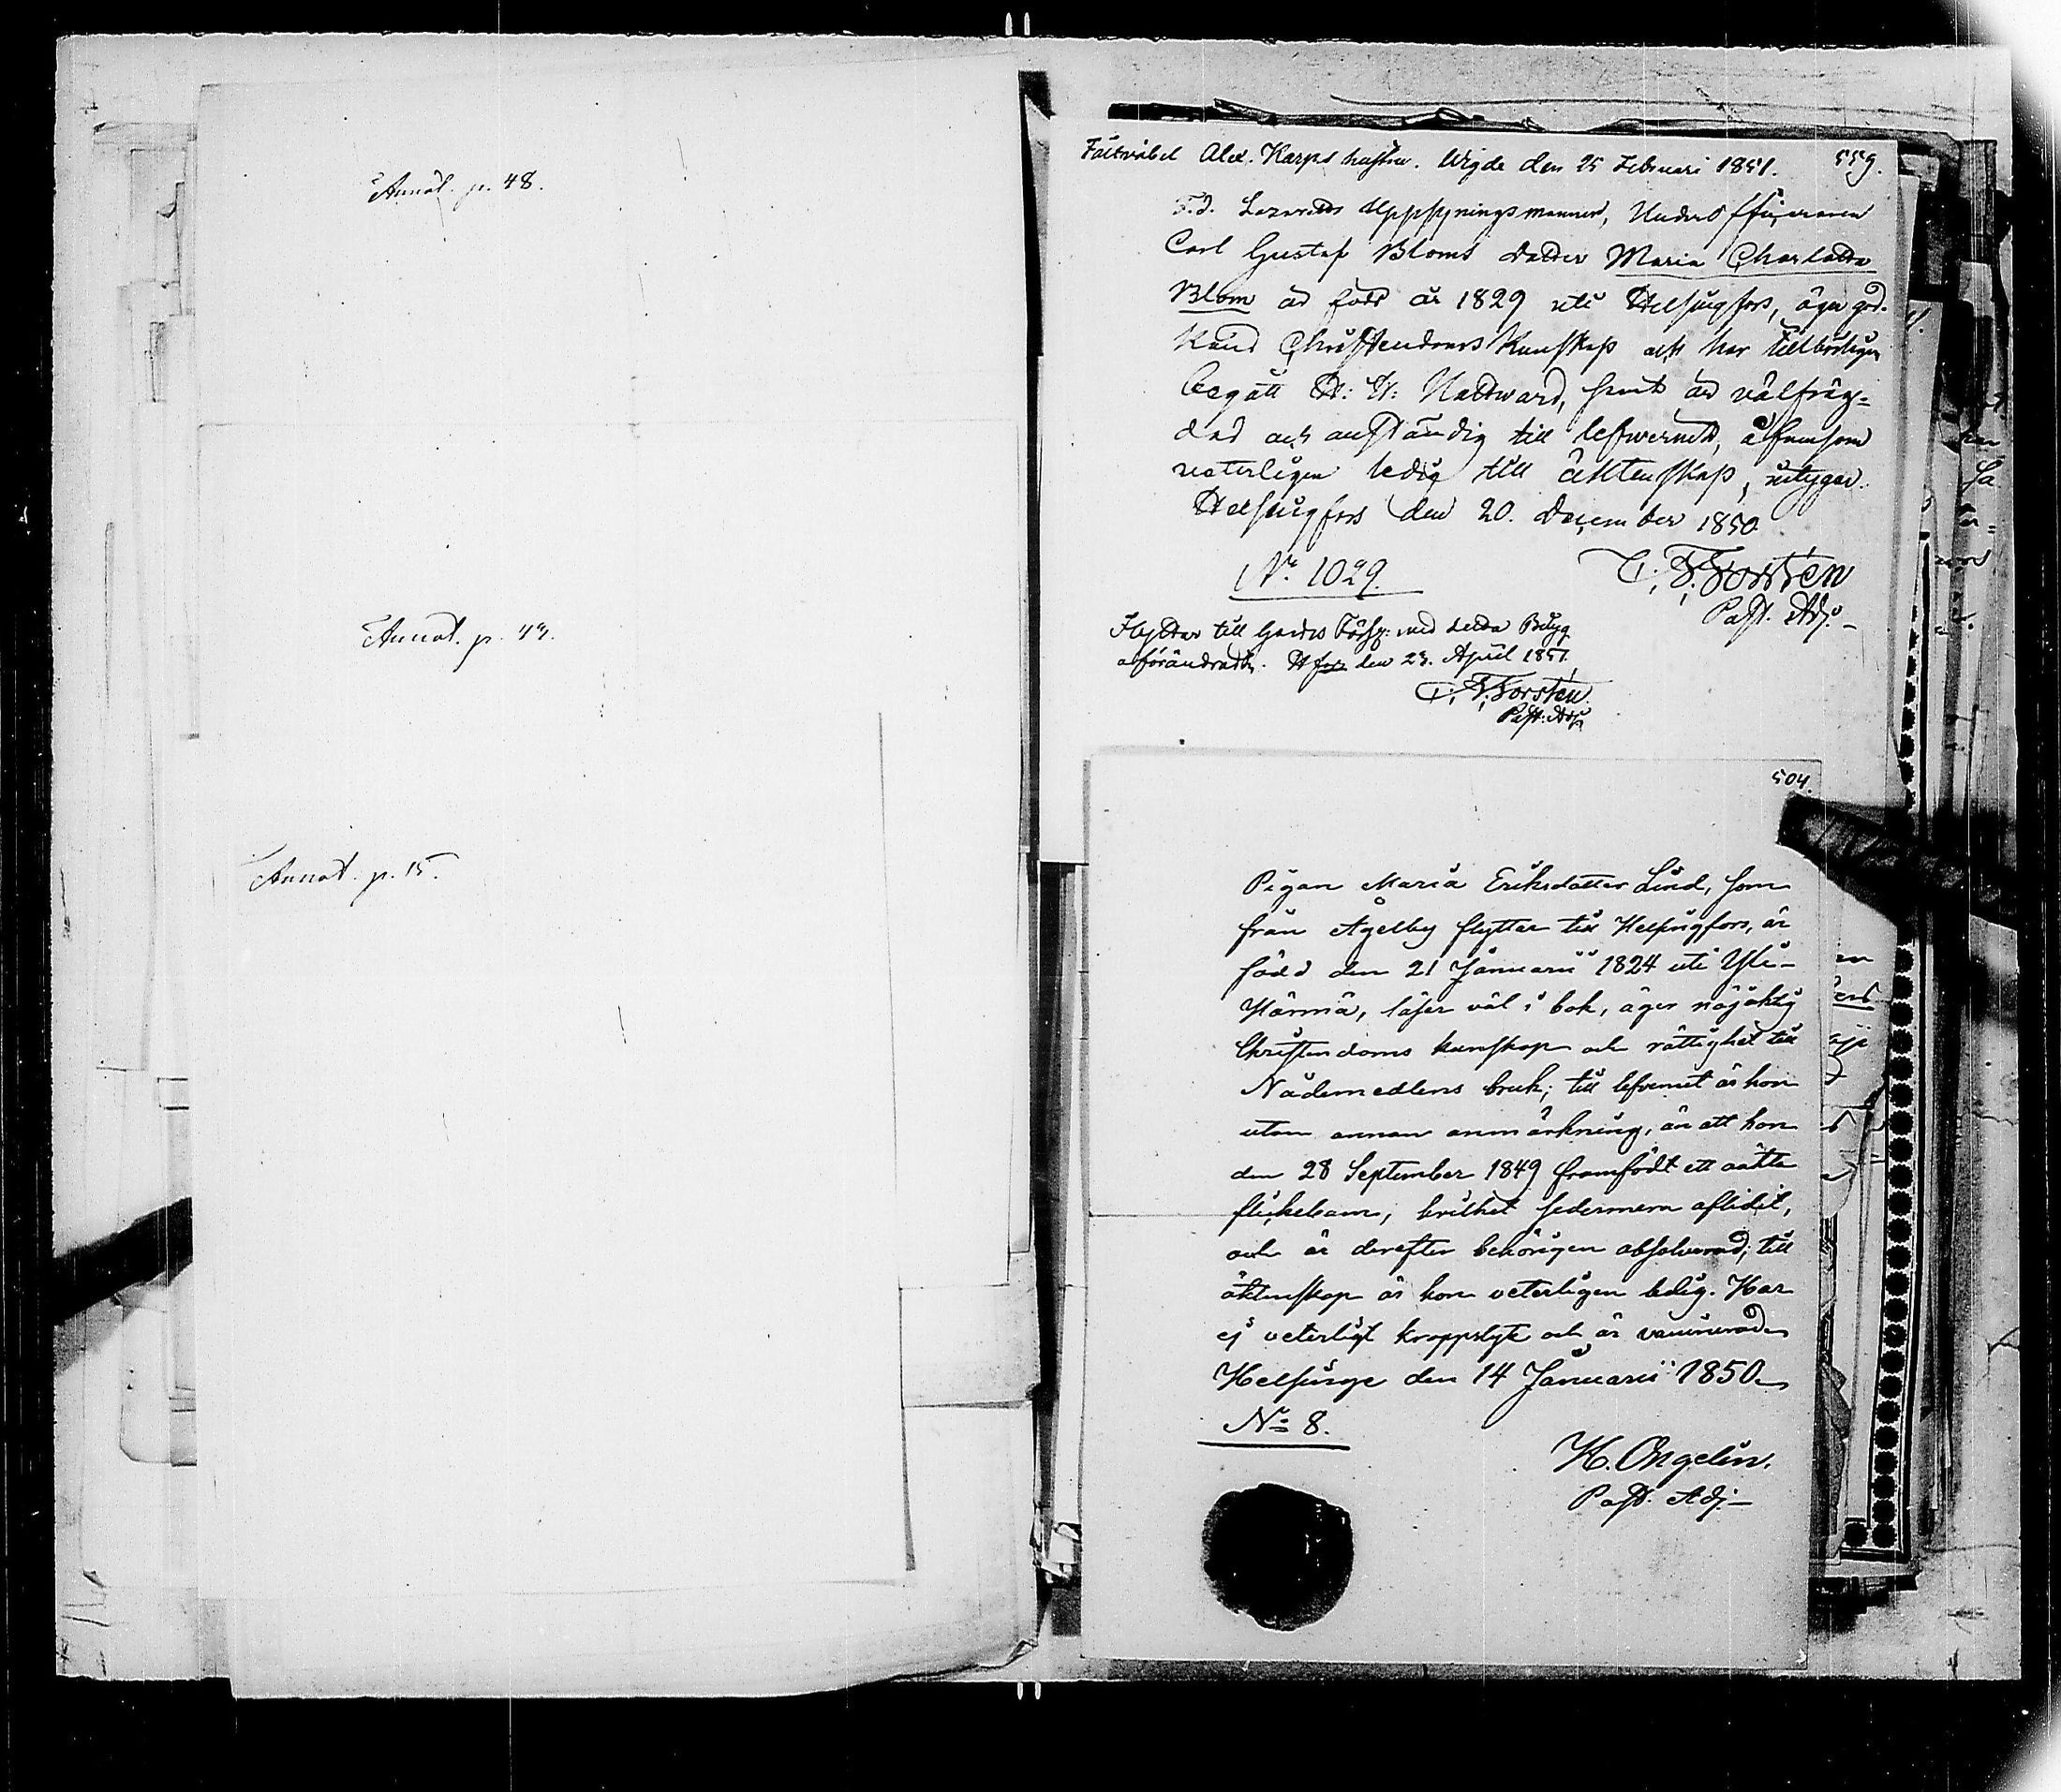 Annot. p. 48.
Annot. p. 43.
Annot. p. 15.
Fältväbel Alex. Karps hustru. Wigde den 25 Februari 1851.
559.
F.d. Lazaretts Uppsyningsmannen, Underofficeraren
Carl Gustaf Bloms dotter Maria Charlotta
Blom är född år 1829 uti Helsingfors, äger god-
känd Christendoms kunskap och har tillbörligen
begått H: H: Nattward, samt är välfräg-
dad och anständig till lefwernet, äfvensom
veterligen ledig till äktenskap, intygar.
Helsingfors den 20. December 1850.
No. 1029.
F. Forstén
Past. Adj.
Flyttar till Gardes Förs: med detta Betyg
oförändradt. H:fors den 23. April 1851.
F. Forstén
Past. Adj.
504.
Pigan Maria Eriksdotter Lind, som
från Ågelby flyttar till Helsingfors, är
född den 21 Januarii 1824 uti Yli-
Härmä, läser väl i bok, äger nöjaktig
Christendoms kunskap och rättighet till
Nådemedlens bruk; till lefvernet är hon
utan annan anmärkning, än att hon
den 28 September 1849 framfödt ett oäkta
flickebarn, hvilket sedermera aflidit,
och är derefter behörigen absolverad; till
äktenskap är hon veterligen ledig. Har
ej veterligt kroppslyte och är vaccinerad
Helsinge den 14 Januarii 1850
No 8.
H. Ongelin.
Past. Adj.